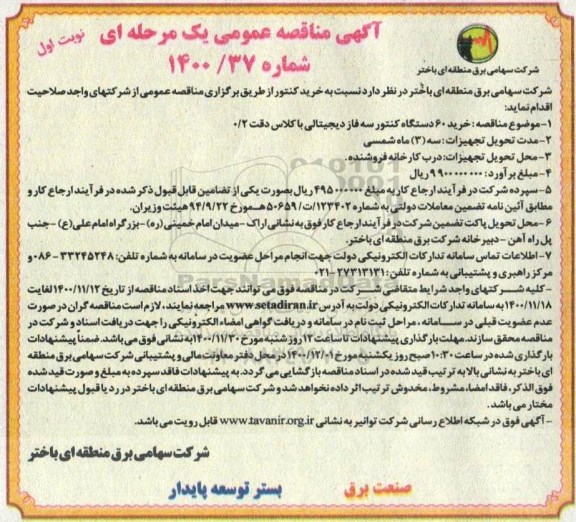 آگهی مناقصه عمومی یک مرحله ای
نوبت اول
شماره ۱۴۰۰/۳۷
شرکت سهامی برق منطقه ای باختر
شرکت سهامی برق منطقه ای باختر در نظر دارد نسبت به خرید کنتور از طریق برگزاری مناقصه عمومی از شرکتهای واجد صلاحیت
اقدام نماید:
۱-موضوع مناقصه: خرید ۶۰ دستگاه کنتور سه فاز دیجیتالی با کلاس دقت ۰/۲
۲-مدت تحویل تجهیزات: سه (۳) ماه شمسی
۳- محل تحویل تجهیزات: درب کارخانه فروشنده.
۴- مبلغ برآورد: ۹۹۰۰۰۰۰۰۰۰ ریال
۵- سپرده شرکت در فرآیند ارجاع کار به مبلغ ۴۹۵۰۰۰۰۰۰ ریال بصورت یکی از تضامین قابل قبول ذکر شده در فرآیند ارجاع کار و
مطابق آئین نامه تضمین معاملات دولتی به شماره ۱۲۳۴۰۲/ت۵۰۶۵۹هـ مورخ ۹۴/۹/۲۲ هیئت وزیران.
۶- محل تحویل پاکت تضمین شرکت در فرآیند ارجاع کار فوق به نشانی اراک -میدان امام خمینی (ره) -بزرگراه امام علی (ع) -جنب
پل راه آهن - دبیرخانه شرکت برق منطقه ای باختر.
۷-اطلاعات تماس سامانه تدارکات الکترونیکی دولت جهت انجام مراحل عضویت در سامانه به شماره تلفن: ۳۳۲۴۵۲۴۸-۰۸۶ و
مرکز راهبری و پشتیبانی به شماره تلفن: ۲۷۳۱۳۱۳۱-۰۲۱
- کلیه شرکتهای واجد شرایط متقاضی شرکت در مناقصه فوق می توانند جهت اخذ اسناد مناقصه از تاریخ ۱۴۰۰/۱۱/۱۲ لغایت
۱۴۰۰/۱۱/۱۸ به سامانه تدارکات الکترونیکی دولت به آدرس www.setadiran.ir مراجعه نمایند، لازم است مناقصه گران در صورت
عدم عضویت قبلی در سامانه، مراحل ثبت نام در سامانه و دریافت گواهی امضاء الکترونیکی را جهت دریافت اسناد و شرکت در
مناقصه محقق سازند. مهلت بارگذاری پیشنهادات تا ساعت ۱۳ روز شنبه مورخ ۱۴۰۰/۱۱/۳۰ به نشانی فوق می باشد. ضمناً پیشنهادات
بارگذاری شده در ساعت ۱۰:۳۰ صبح روز یکشنبه مورخ ۱۴۰۰/۱۲/۰۱ در محل دفتر معاونت مالی و پشتیبانی شرکت سهامی برق منطقه
ای باختر به نشانی بالا به ترتیب قید شده در اسناد مناقصه بازگشایی می گردد. به پیشنهادات فاقد سپرده به مبلغ و صورت قید شده
فوق الذکر، فاقد امضا، مشروط، مخدوش ترتیب اثر داده نخواهد شد و شرکت سهامی برق منطقه ای باختر در رد یا قبول پیشنهادات
مختار می باشد.
- آگهی فوق در شبکه اطلاع رسانی شرکت توانیر به نشانی www.tavanir.org.ir قابل رویت می باشد.
شرکت سهامی برق منطقه ای باختر
صنعت برق
بستر توسعه پایدار